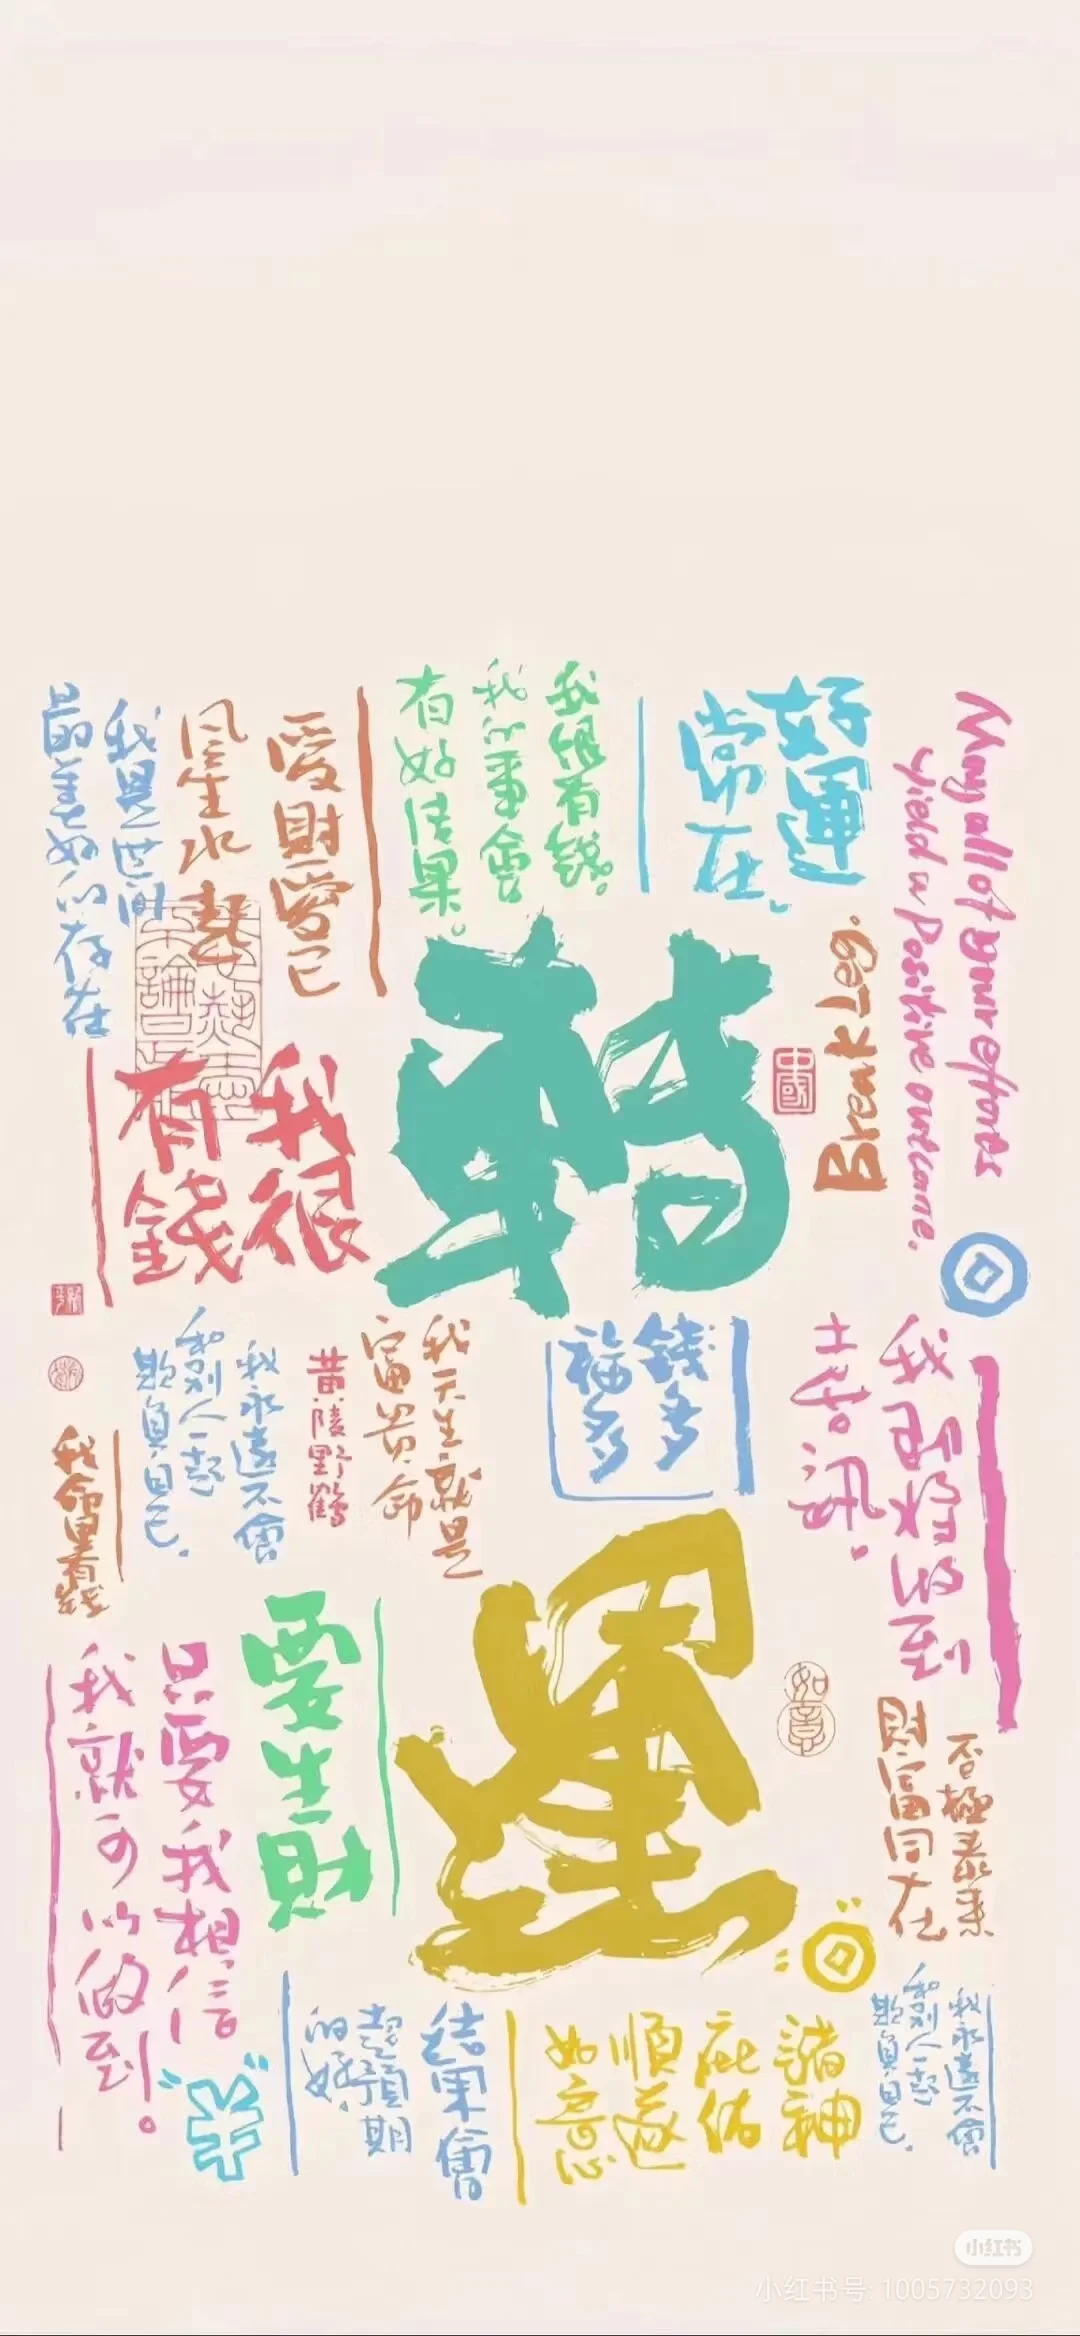 May all of your efforts
yield a Positive outcome.
好運
常在
Break Leg.
中國
我很有錢。
我的事會
有好結果。
愛財愛己
風生水起
我是世間
最美好的存在
轉
我很
有錢
錢多多
福多多
我即將收到
喜訊
我天生就是
富貴命
黄陵野鶴
我永遠不會
和别人一起
欺負自己
我命里有錢
運
如意
否極泰来
財富同在
要生財
只要我相信
我就可以做到!
我永遠不會
和别人一起
欺負自己
諸神
庇佑
順遂
如意
結果會
超預期
的好
小红书
小红书号: 1005732093